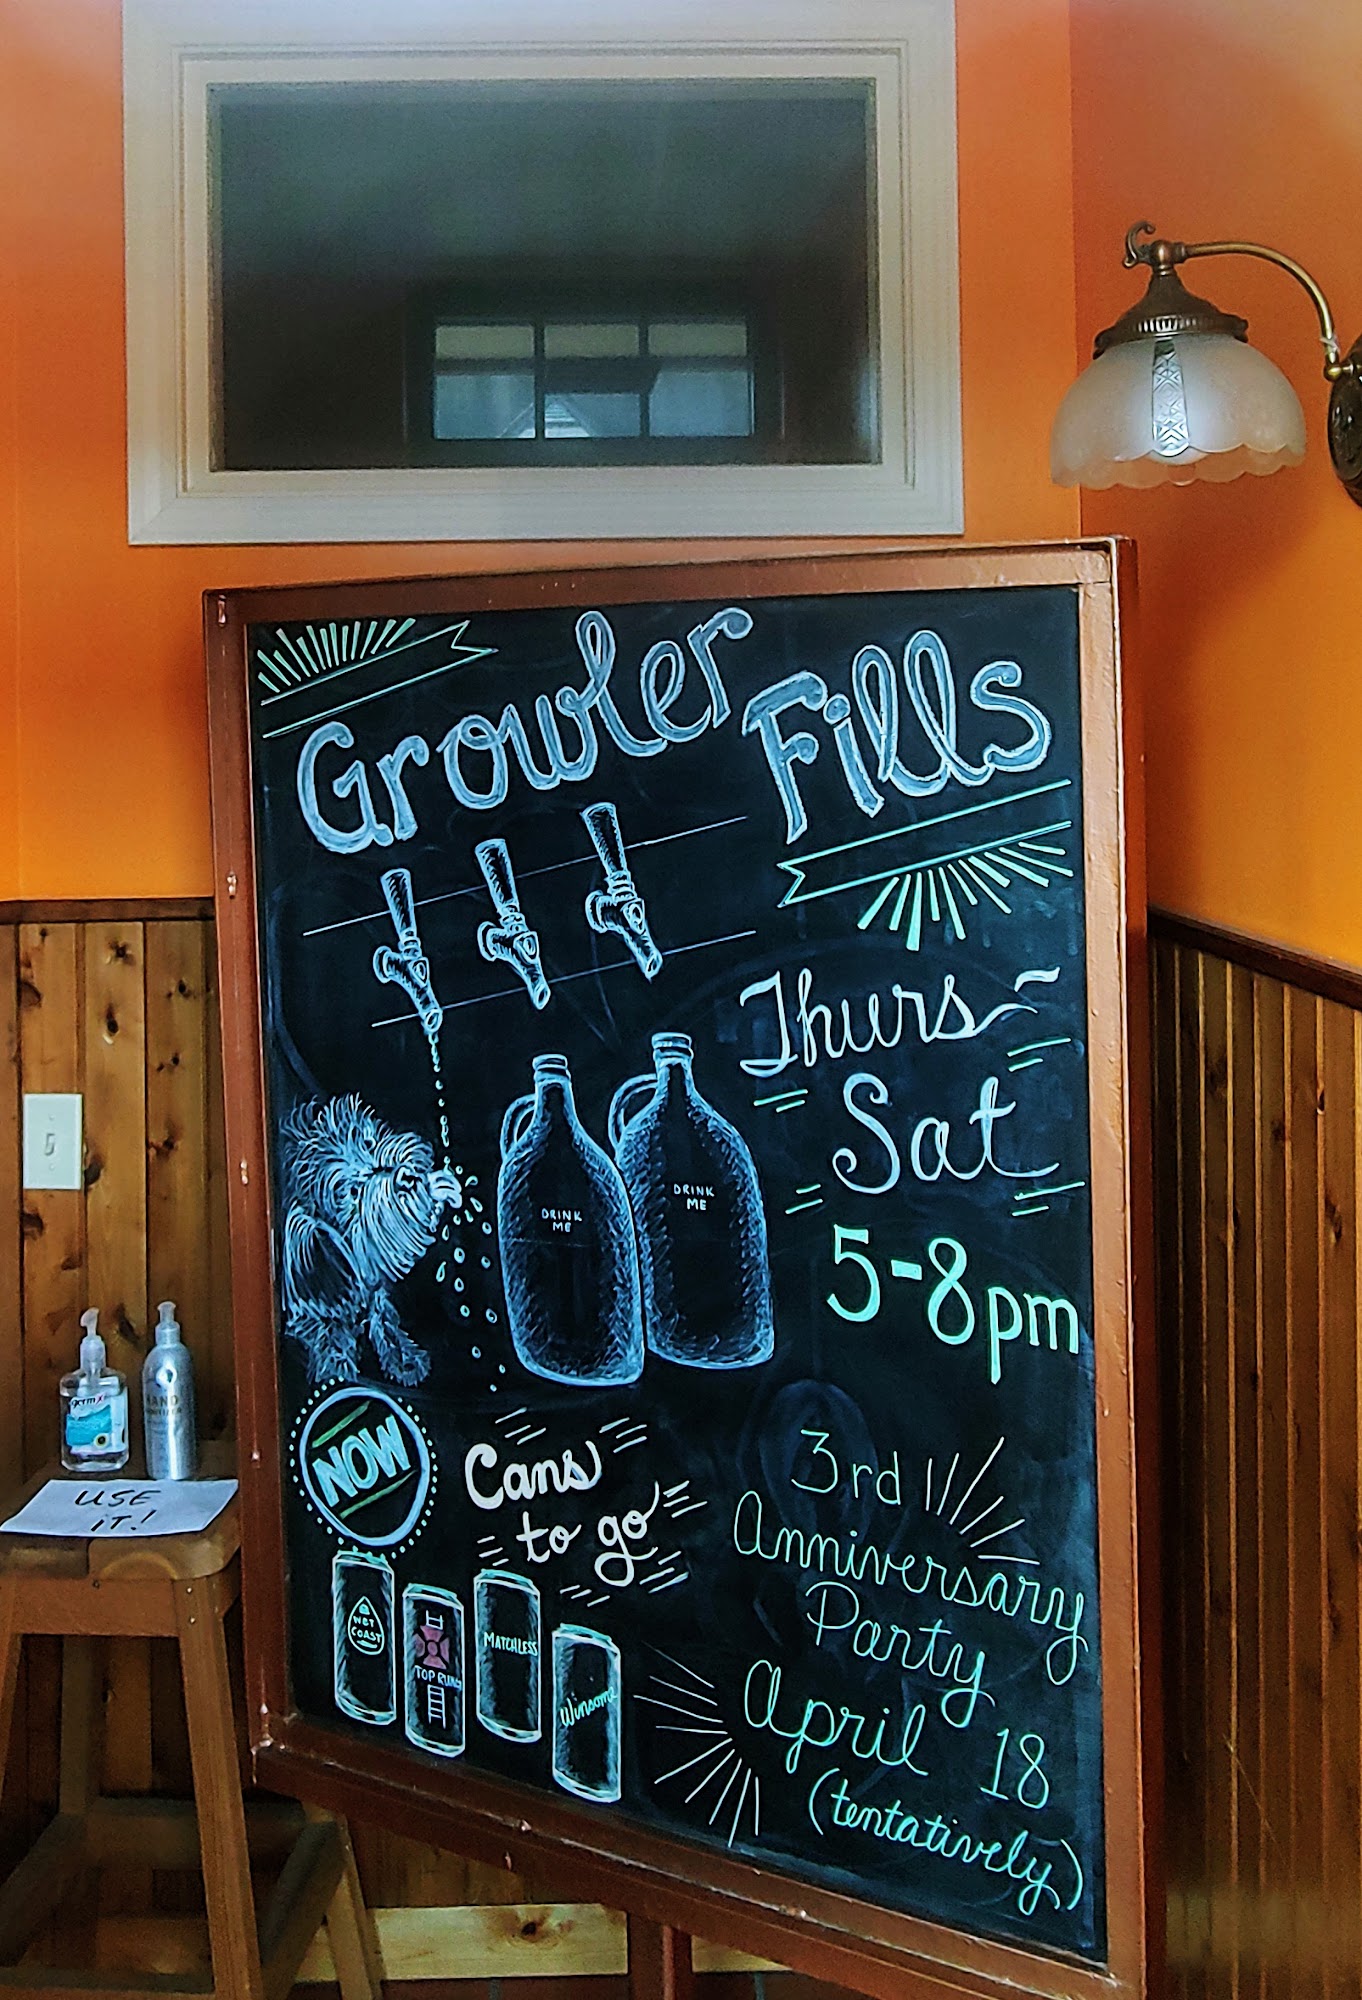 Growler
Fills
Thurs ~
Sat
5-8pm
DRINK
ME
DRINK
ME
NOW
Cans
to go
WET
COAST
TOP RUNG
MATCHLESS
Winsome
3rd
Anniversary
Party
April 18
(tentatively)
germx
HAND
SANITIZER
USE
iT!